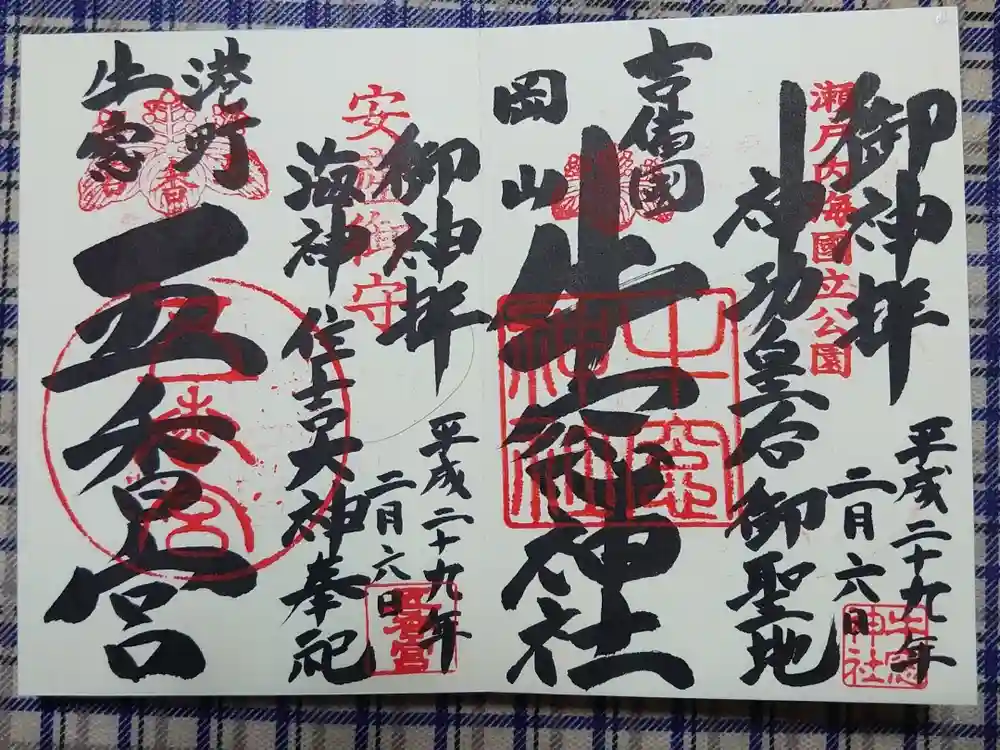 御神拝
平成二十九年
二月六日
瀬戸内海國立公園
神功皇后御聖地
吉備國
岡山
牛窓神社
牛窓神社
牛窓神社
御神拝
平成二十九年
二月六日
五香宮
安産御守
海神住吉大神奉祀
港町
牛窓
香
五香宮